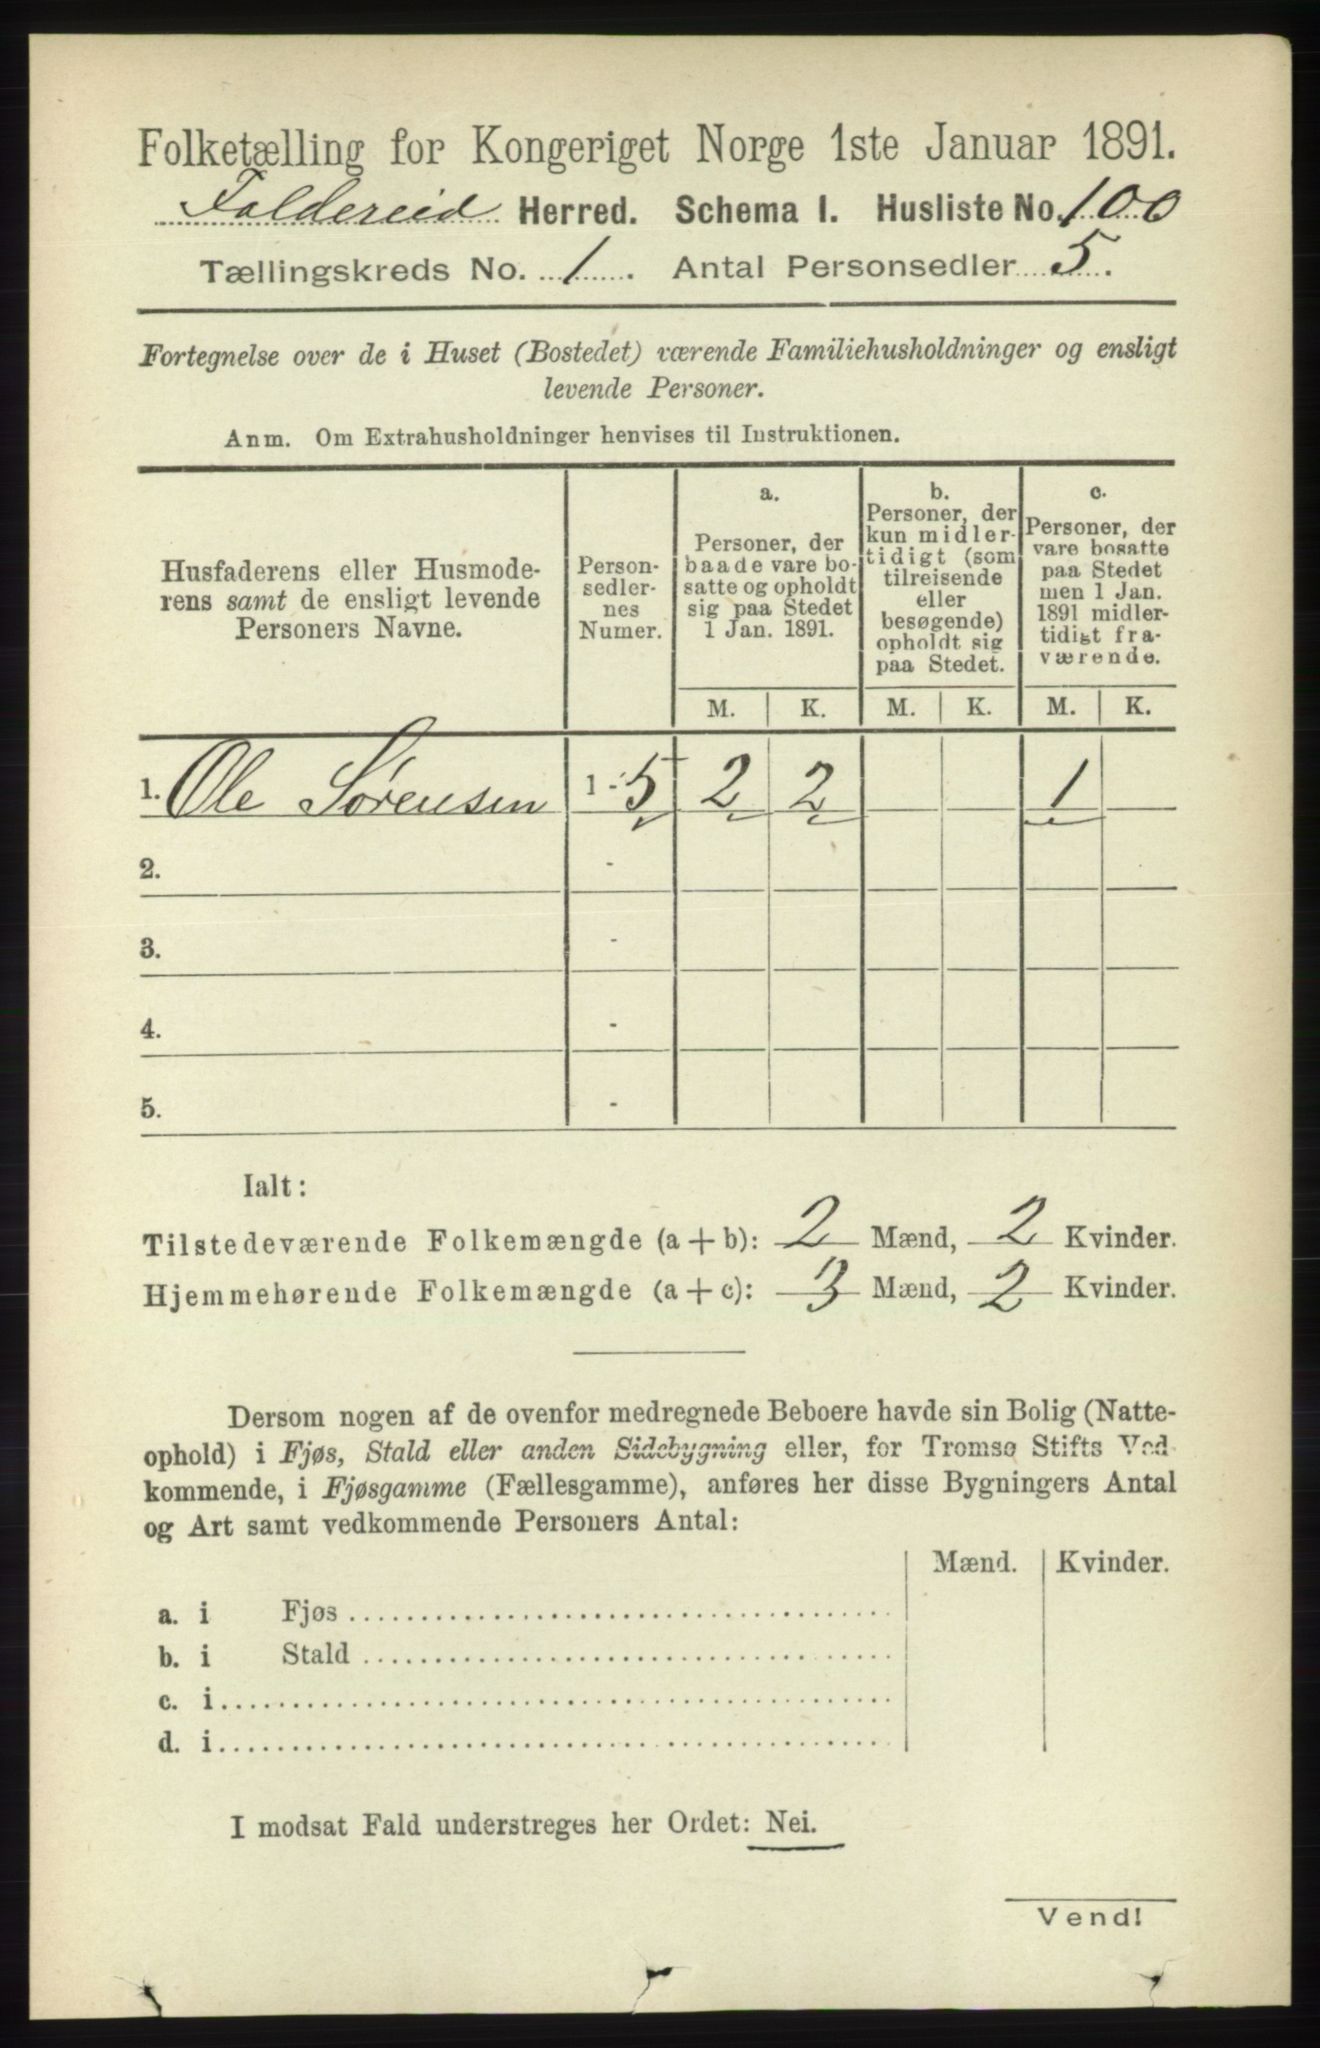 Folketælling for Kongeriget Norge 1ste Januar 1891.
Foldereid Herred. Schema I. Husliste No. 100
Tællingskreds No. 1. Antal Personsedler 5.
Fortegnelse over de i Huset (Bostedet) værende Familiehusholdninger og ensligt
levende Personer.
Anm. Om Extrahusholdninger henvises til Instruktionen.
Husfaderens eller Husmode-
rens samt de ensligt levende
Personers Navne.
Person-
sedler-
nes
Numer.
a.
Personer, der
baade vare bo-
satte og opholdt
sig paa Stedet
1 Jan. 1891.
b.
Personer, der
kun midler-
tidigt (som
tilreisende
eller
besøgende)
opholdt sig
paa Stedet.
c.
Personer, der
vare bosatte
paa Stedet
men 1 Jan.
1891 midler-
tidigt fra-
værende.
M. K. M. K. M. K.
1. Ole Sørensen 1 - 5 2 2 1
2. -
3. -
4. -
5. -
Ialt:
Tilstedeværende Folkemængde (a + b): 2 Mænd, 2 Kvinder.
Hjemmehørende Folkemængde (a + c): 3 Mænd, 2 Kvinder.
Dersom nogen af de ovenfor medregnede Beboere havde sin Bolig (Natte-
ophold) i Fjøs, Stald eller anden Sidebygning eller, for Tromsø Stifts Ved-
kommende, i Fjøsgamme (Fællesgamme), anføres her disse Bygningers Antal
og Art samt vedkommende Personers Antal:
Mænd. Kvinder.
a. i Fjøs
b. i Stald
c. i
d. i
I modsat Fald understreges her Ordet: Nei.
Vend!